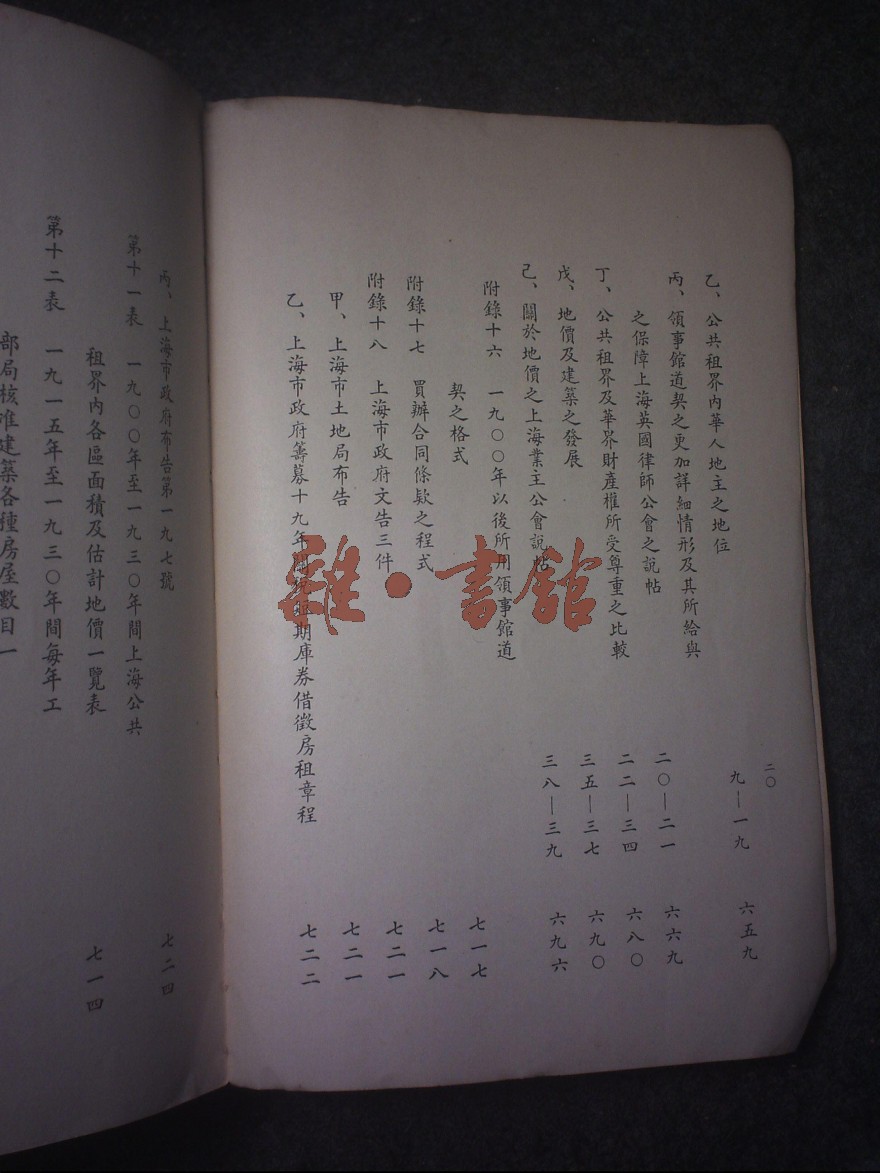 二〇
乙、公共租界內華人地主之地位 九—一九 六五九
丙、領事館道契之更加詳細情形及其所給與
之保障上海英國律師公會之說帖 二〇—二一 六六九
丁、公共租界及華界財產權所受尊重之比較 二二—三四 六八〇
戊、地價及建築之發展 三五—三七 六九〇
己、關於地價之上海業主公會說帖 三八—三九 六九六
附錄十六 一九〇〇年以後所用領事館道
契之格式 七一七
附錄十七 買辦合同條款之程式 七一八
附錄十八 上海市政府文告三件 七二一
甲、上海市土地局布告 七二一
乙、上海市政府籌募十九年關稅短期庫券借徵房租章程 七二二
丙、上海市政府布告第一九七號 七二四
第十一表 一九〇〇年至一九三〇年間上海公共
租界內各區面積及估計地價一覽表 七一四
第十二表 一九一五年至一九三〇年間每年工
部局核准建築各種房屋數目一
雜·書館